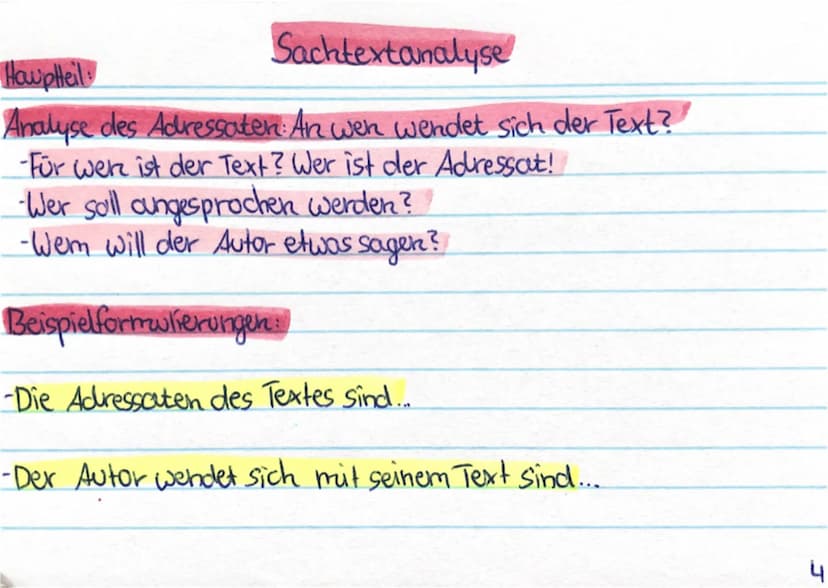 Sachtextanalyse
Hauptteil:
Analyse des Adressaten: An wen wendet sich der Text?
-Für wen ist der Text? Wer ist der Adressat!
-Wer soll angesprochen werden?
-Wem will der Autor etwas sagen?
Beispielformulierungen:
-Die Adressaten des Textes sind...
-Der Autor wendet sich mit seinem Text sind...
4